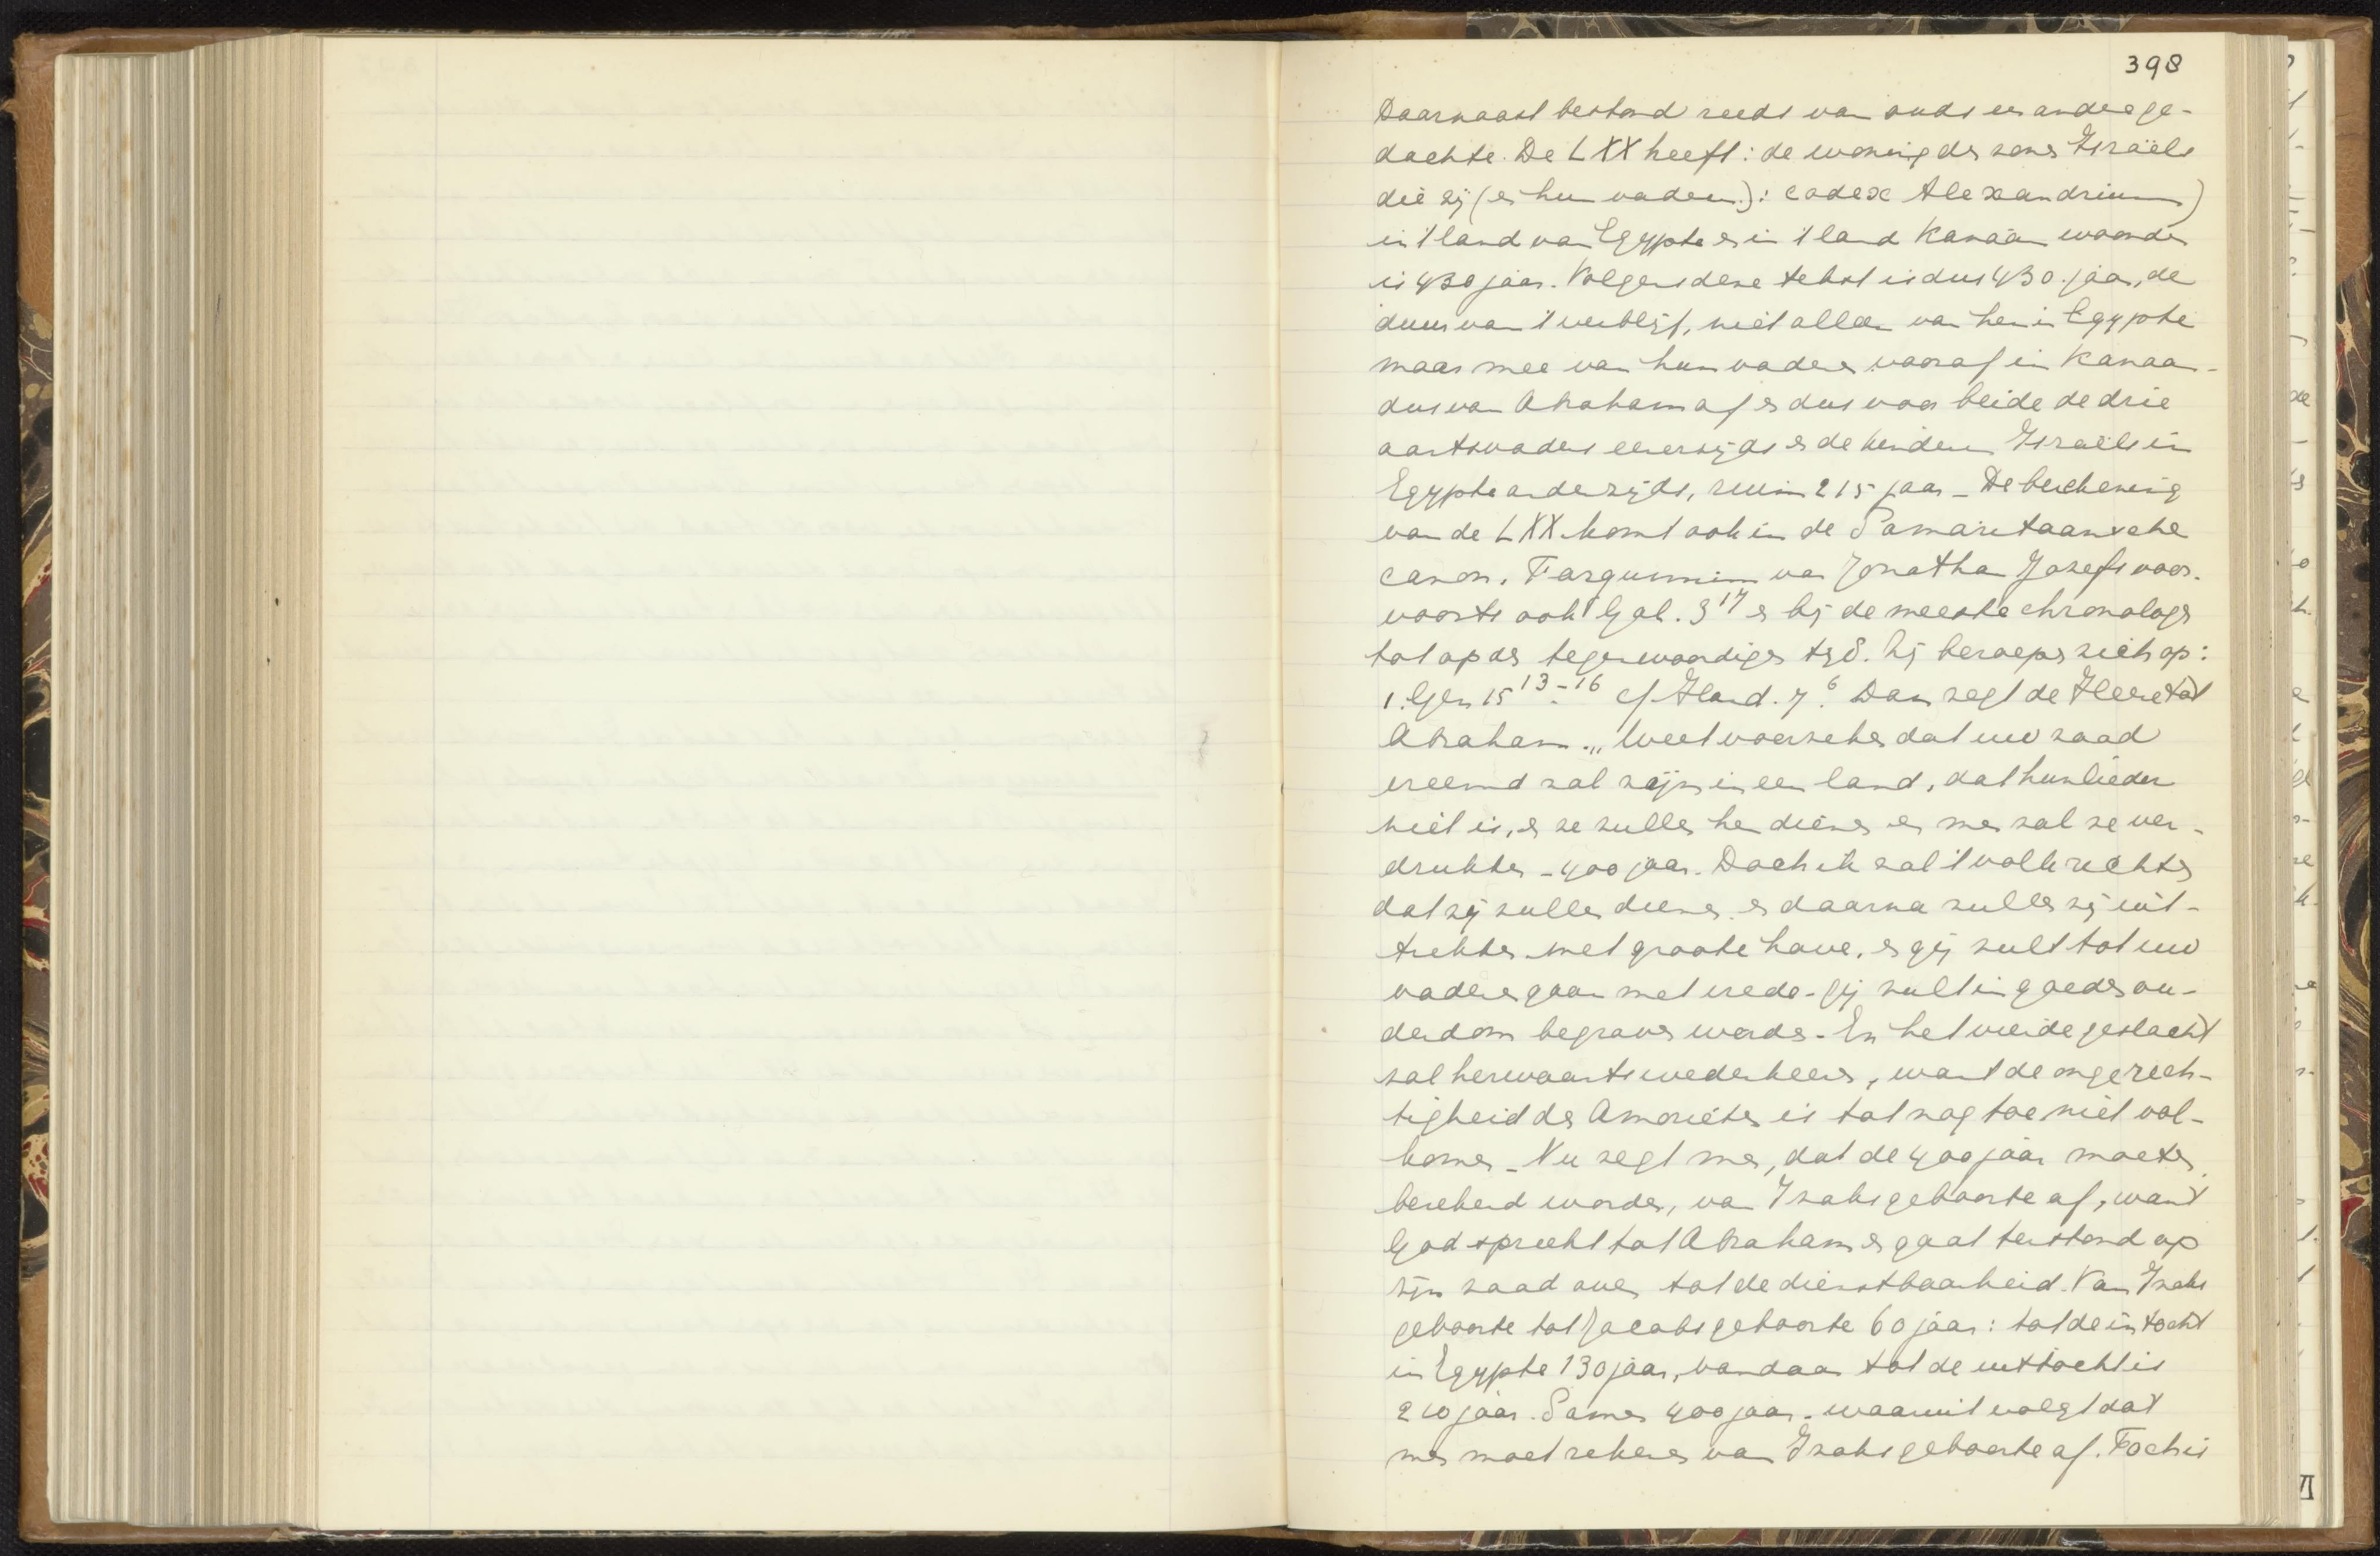 398
Daarnaast bestond reeds van ouds een andere ge-
dachte. De LXX heeft: de woning der zonen Israëls
die zij (en hun vaderen): codex Alexandrinus)
in 't land van Egypte en in 't land Kanaän woonden
is 430 jaar. Volgens deze tekst is dus 430 jaar, de
duur van 't verblijf, niet alleen van hen in Egypte
maar mee van hun vaderen vooraf in Kanaan -
dus van Abraham af en dus voor beide de drie
aartsvaders eenerzijds en de kinderen Israëls in
Egypte anderzijds, ruim 215 jaar - De berekening
van de LXX komt ook in de Samaritaansche
canon. Targumim van Jonathan Josefs voor.
voorts ook Gal. 3 17 en bij de meeste chronologen
tot op den tegenwoordigen tijd. Zij beroepen zich op:
1. Gen 15 13-16 cf Hand. 7 6. Dan zegt de Heere tot
Abraham „Weet voorzeker dat uw zaad
vreemd zal zijn in een land, dat hunlieder
niet is, en ze zullen hen dienen en men zal ze ver-
drukken - 400 jaar. Doch ik zal 't volk rechten
dat zij zullen dienen en daarna zullen zij uit-
trekken met groote have, en gij zult tot uw
vaderen gaan met vrede - gij zult in goeden ou-
derdom begraven worden - En het vierde geslacht
zal herwaarts wederkeeren, want de ongerech-
tigheid der Amorieten is tot nog toe niet vol-
komen - Nu zegt men, dat de 400 jaar moeten
berekend worden, van Izaks geboorte af, want
God spreekt tot Abraham en gaat terstond op
zijn zaad over tot de dienstbaarheid. Van Izaks
geboorte tot Jacobs geboorte 60 jaar: tot de intocht
in Egypte 130 jaar, vandaar tot de uittocht is
210 jaar. Samen 400 jaar - waaruit volgt dat
men moet rekenen van Izaks geboorte af. Toch is